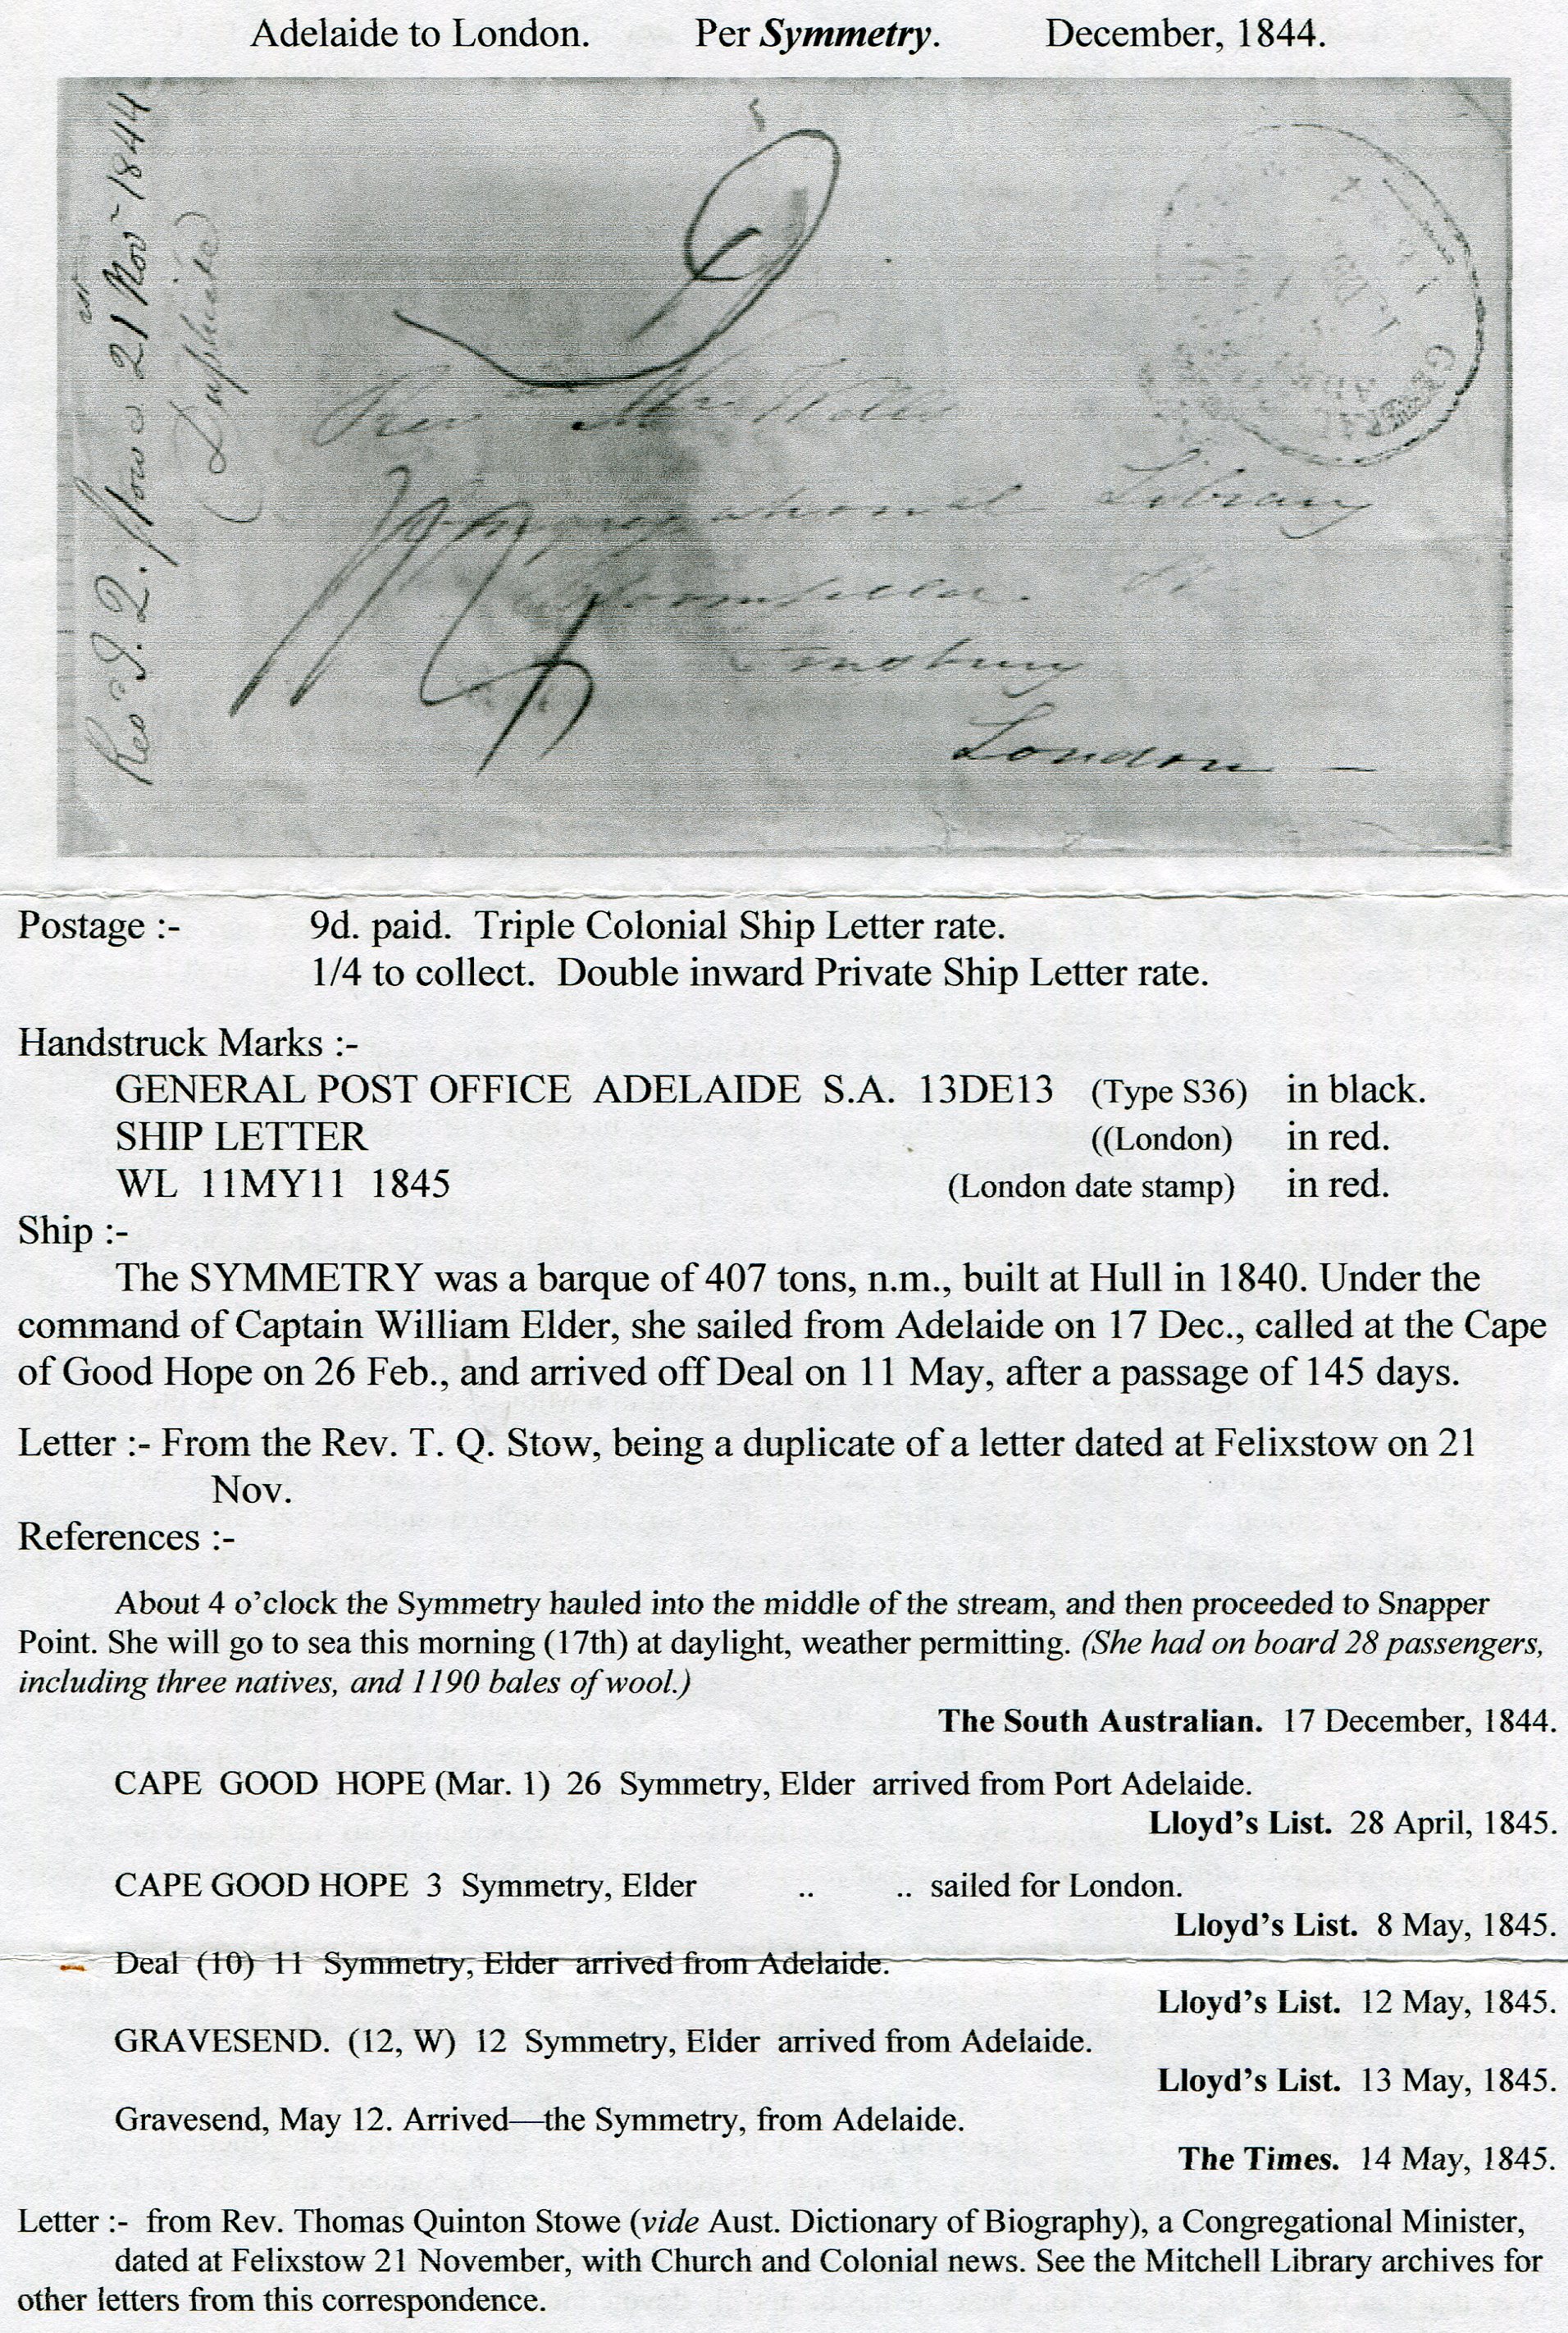 Adelaide to London. Per Symmetry. December, 1844.
Rev T. Q. Stow 21st Nov - 1844
(Duplicate)
9
Rev Mr Wells
Congregational Library
Bloomfield St
Finsbury
London —
1/4
GENERAL
Postage :- 9d. paid. Triple Colonial Ship Letter rate.
1/4 to collect. Double inward Private Ship Letter rate.
Handstruck Marks :-
GENERAL POST OFFICE ADELAIDE S.A. 13DE13 (Type S36) in black.
SHIP LETTER ((London) in red.
WL 11MY11 1845 (London date stamp) in red.
Ship :-
The SYMMETRY was a barque of 407 tons, n.m., built at Hull in 1840. Under the
command of Captain William Elder, she sailed from Adelaide on 17 Dec., called at the Cape
of Good Hope on 26 Feb., and arrived off Deal on 11 May, after a passage of 145 days.
Letter :- From the Rev. T. Q. Stow, being a duplicate of a letter dated at Felixstow on 21
Nov.
References :-
About 4 o’clock the Symmetry hauled into the middle of the stream, and then proceeded to Snapper
Point. She will go to sea this morning (17th) at daylight, weather permitting. (She had on board 28 passengers,
including three natives, and 1190 bales of wool.)
The South Australian. 17 December, 1844.
CAPE GOOD HOPE (Mar. 1) 26 Symmetry, Elder arrived from Port Adelaide.
Lloyd’s List. 28 April, 1845.
CAPE GOOD HOPE 3 Symmetry, Elder .. .. sailed for London.
Lloyd’s List. 8 May, 1845.
Deal (10) 11 Symmetry, Elder arrived from Adelaide.
Lloyd’s List. 12 May, 1845.
GRAVESEND. (12, W) 12 Symmetry, Elder arrived from Adelaide.
Lloyd’s List. 13 May, 1845.
Gravesend, May 12. Arrived—the Symmetry, from Adelaide.
The Times. 14 May, 1845.
Letter :- from Rev. Thomas Quinton Stowe (vide Aust. Dictionary of Biography), a Congregational Minister,
dated at Felixstow 21 November, with Church and Colonial news. See the Mitchell Library archives for
other letters from this correspondence.